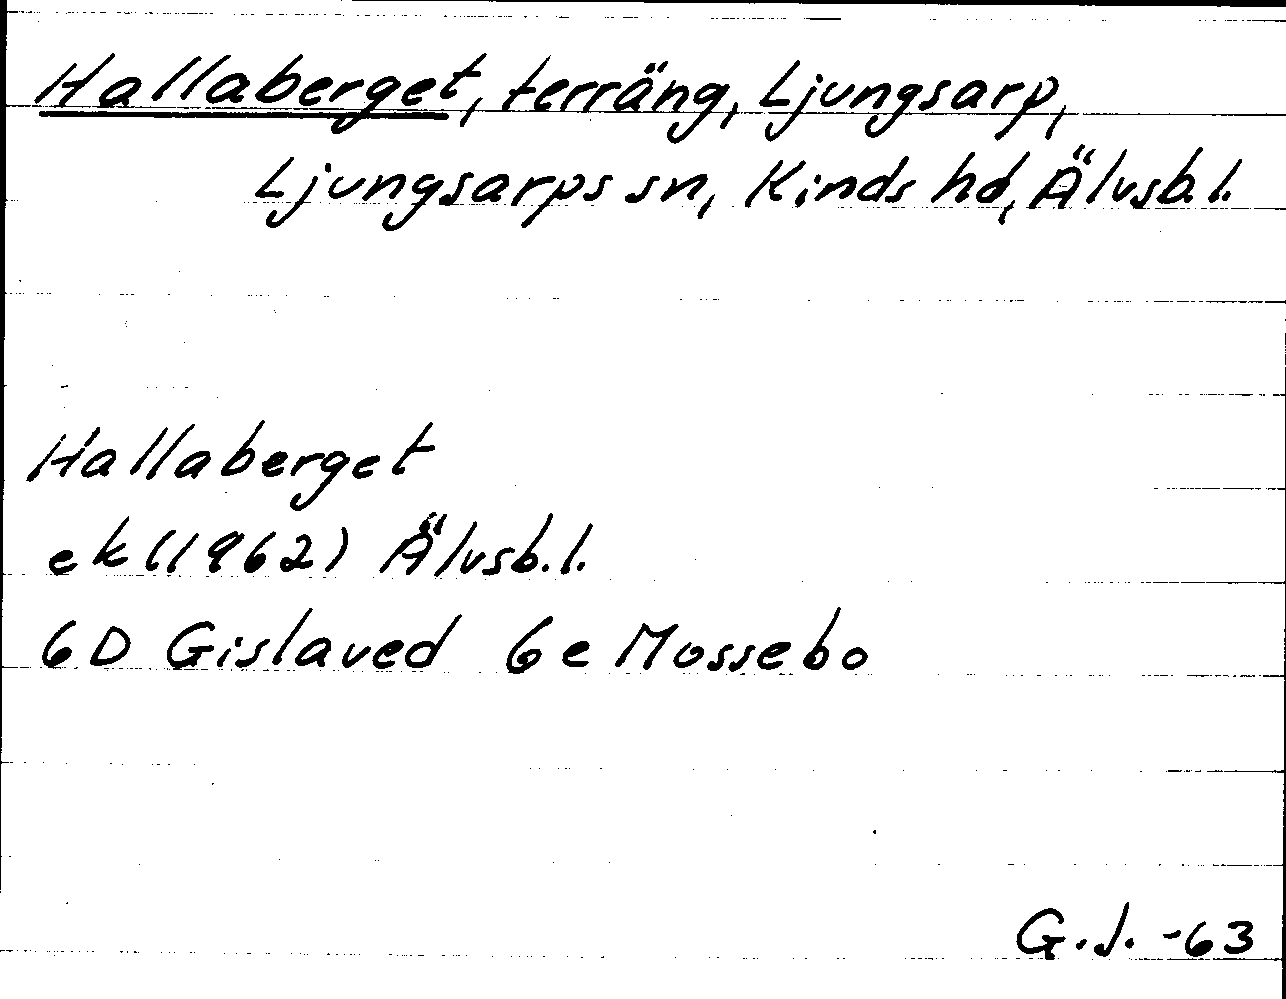 Hallaberget, terräng, Ljungsarp,
Ljungsarps sn, Kinds hd, Älvsb. l.
Hallaberget
ek (1962) Älvsb. l.
6D Gislaved 6e Mossebo
G.J. -63